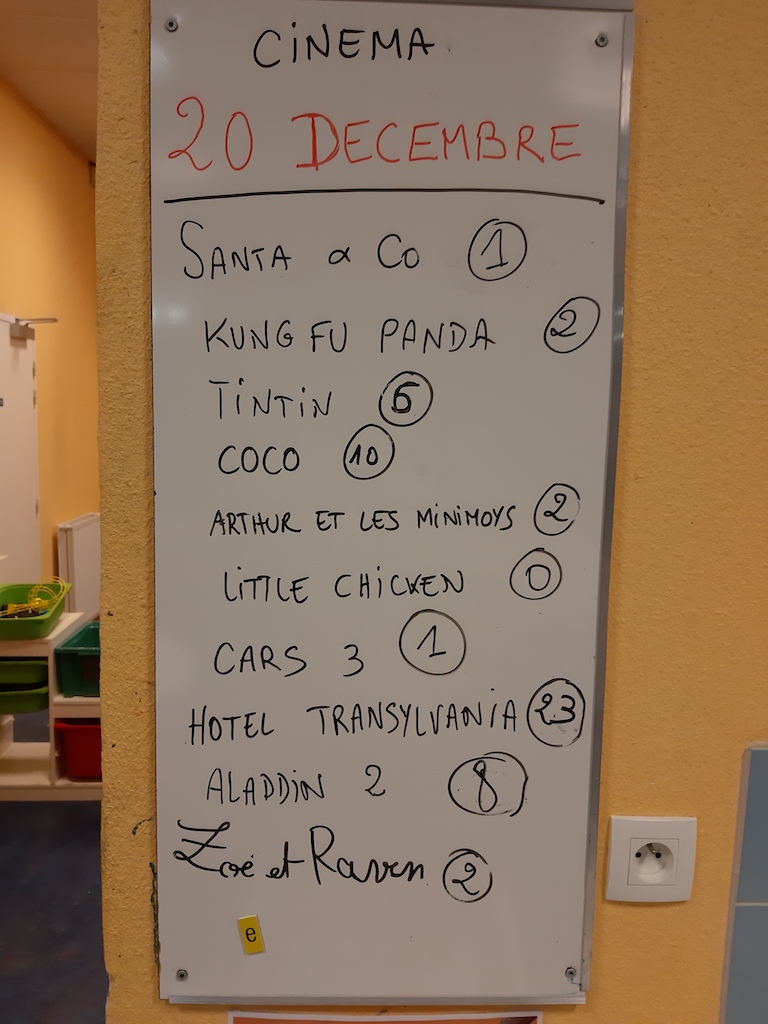 CINEMA
20 DECEMBRE
SANTA & CO 1
KUNG FU PANDA 2
TINTIN 6
COCO 10
ARTHUR ET LES MINIMOYS 2
LITTLE CHICKEN 0
CARS 3 1
HOTEL TRANSYLVANIA 23
ALADDIN 2 8
Zoé et Raven 2
e